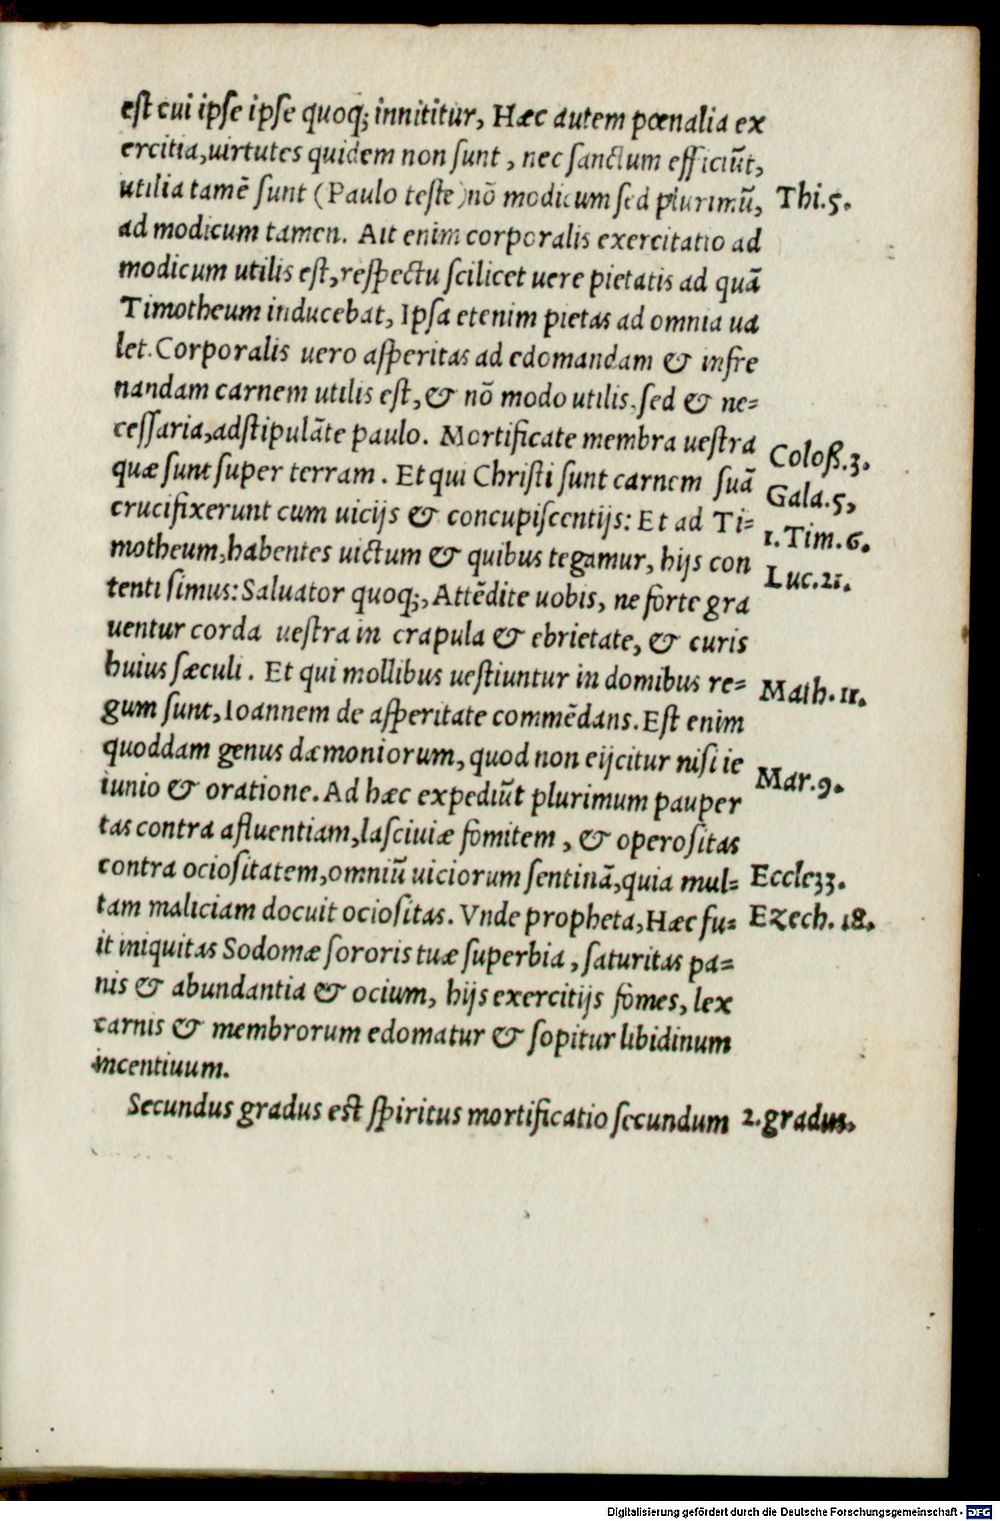 est cui ipse ipse quoq; innititur, Hæc autem pœnalia ex
ercitia, uirtutes quidem non sunt, nec sanctum efficiūt,
utilia tamē sunt (Paulo teste) nō modicum sed plurimū, Thi.5.
ad modicum tamen. Ait enim corporalis exercitatio ad
modicum utilis est, respectu scilicet uere pietatis ad quā
Timotheum inducebat, Ipsa etenim pietas ad omnia ua
let. Corporalis uero asperitas ad edomandam & infre
nandam carnem utilis est, & nō modo utilis, sed & ne=
cessaria, adstipulāte paulo. Mortificate membra uestra
quæ sunt super terram. Et qui Christi sunt carnem suā Coloß.3.
crucifixerunt cum uicijs & concupiscentijs: Et ad Ti= Gala.5,
motheum, habentes uictum & quibus tegamur, hijs con 1.Tim.6.
tenti simus: Saluator quoq;, Attēdite uobis, ne forte gra Luc.21.
uentur corda uestra in crapula & ebrietate, & curis
huius sæculi. Et qui mollibus uestiuntur in domibus re= Math.11.
gum sunt, Ioannem de asperitate commēdans. Est enim
quoddam genus dæmoniorum, quod non eijcitur nisi ie
iunio & oratione. Ad hæc expediūt plurimum pauper Mar.9.
tas contra afluentiam, lasciuiæ fomitem, & operositas
contra ociositatem, omniū uiciorum sentinā, quia mul= Eccle33.
tam maliciam docuit ociositas. Vnde propheta, Hæc fu= Ezech.18.
it iniquitas Sodomæ sororis tuæ superbia, saturitas pa=
nis & abundantia & ocium, hijs exercitijs fomes, lex
carnis & membrorum edomatur & sopitur libidinum
incentiuum.
Secundus gradus est spiritus mortificatio secundum 2.gradus.
Digitalisierung gefördert durch die Deutsche Forschungsgemeinschaft - DFG